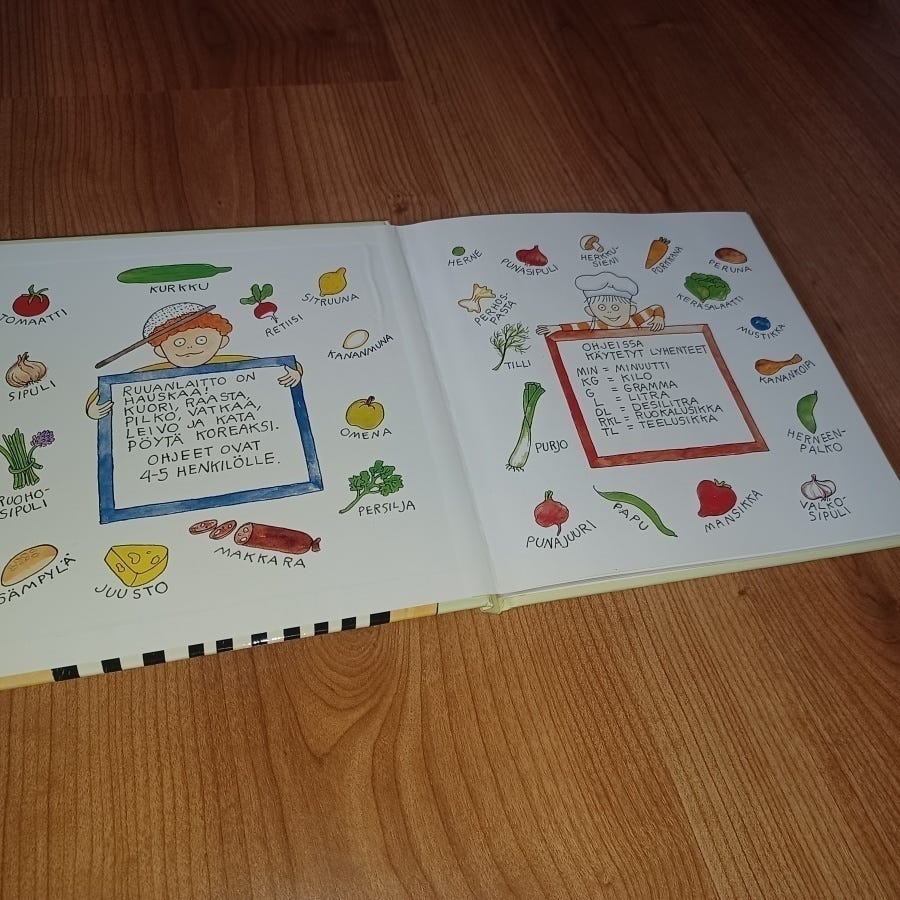 KURKKU
TOMAATTI
RETIISI
SITRUUNA
KANANMUNA
SIPULI
RUUANLAITTO ON
HAUSKAA!
KUORI, RAASTA,
PILKO, VATKAA,
LEIVO JA KATA
PÖYTÄ KOREAKSI.
OHJEET OVAT
4-5 HENKILÖLLE.
OMENA
RUOHO-
SIPULI
PERSILJA
SÄMPYLÄ
JUUSTO
MAKKARA
HERNE
PUNASIPULI
HERKKU-
SIENI
PORKKANA
PERUNA
PERHOS-
PASTA
KERÄSALAATTI
MUSTIKKA
TILLI
OHJEISSA
KÄYTETYT LYHENTEET
MIN = MINUUTTI
KG = KILO
G = GRAMMA
L = LITRA
DL = DESILITRA
RKL = RUOKALUSIKKA
TL = TEELUSIKKA
KANANKOIPI
PURJO
HERNEEN-
PALKO
PUNAJUURI
PAPU
MANSIKKA
VALKO-
SIPULI